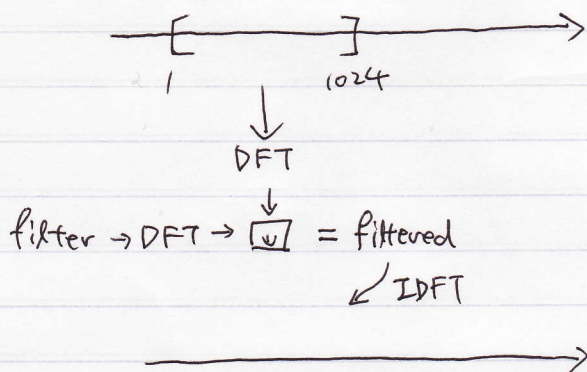 1 1024
DFT
filter → DFT → ↓ = filtered
IDFT